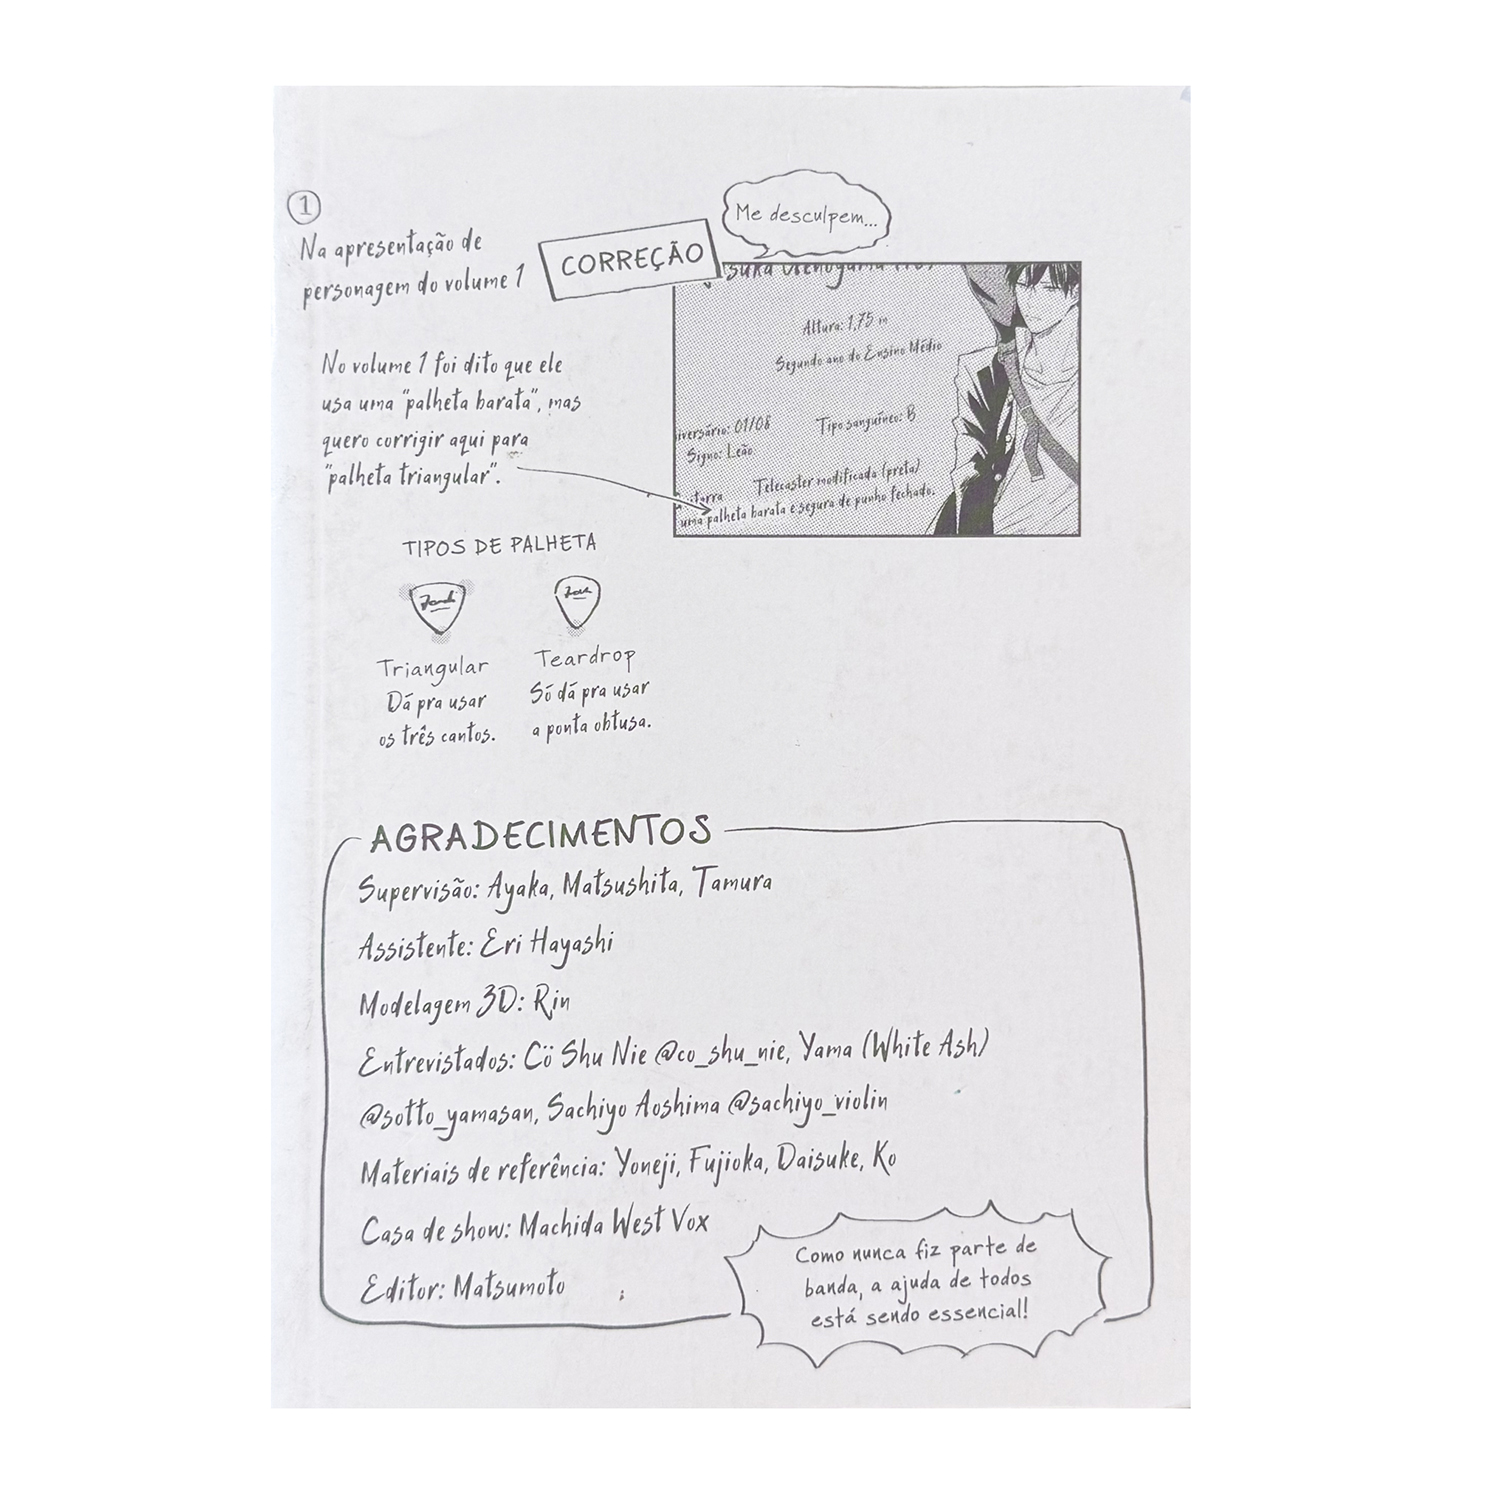 1
Na apresentação de
personagem do volume 1
CORREÇÃO
Me desculpem...
No volume 1 foi dito que ele
usa uma "palheta barata", mas
quero corrigir aqui para
"palheta triangular".
Altura: 1,75 m
Segundo ano do Ensino Médio
iversário: 01/08
Tipo sanguíneo: B
Signo: Leão
Telecaster modificada (preta)
uma palheta barata e segura de punho fechado.
TIPOS DE PALHETA
Triangular
Dá pra usar
os três cantos.
Teardrop
Só dá pra usar
a ponta obtusa.
AGRADECIMENTOS
Supervisão: Ayaka, Matsushita, Tamura
Assistente: Eri Hayashi
Modelagem 3D: Rin
Entrevistados: Cö Shu Nie @co_shu_nie, Yama (White Ash)
@sotto_yamasan, Sachiyo Aoshima @sachiyo_violin
Materiais de referência: Yoneji, Fujioka, Daisuke, Ko
Casa de show: Machida West Vox
Editor: Matsumoto
Como nunca fiz parte de
banda, a ajuda de todos
está sendo essencial!